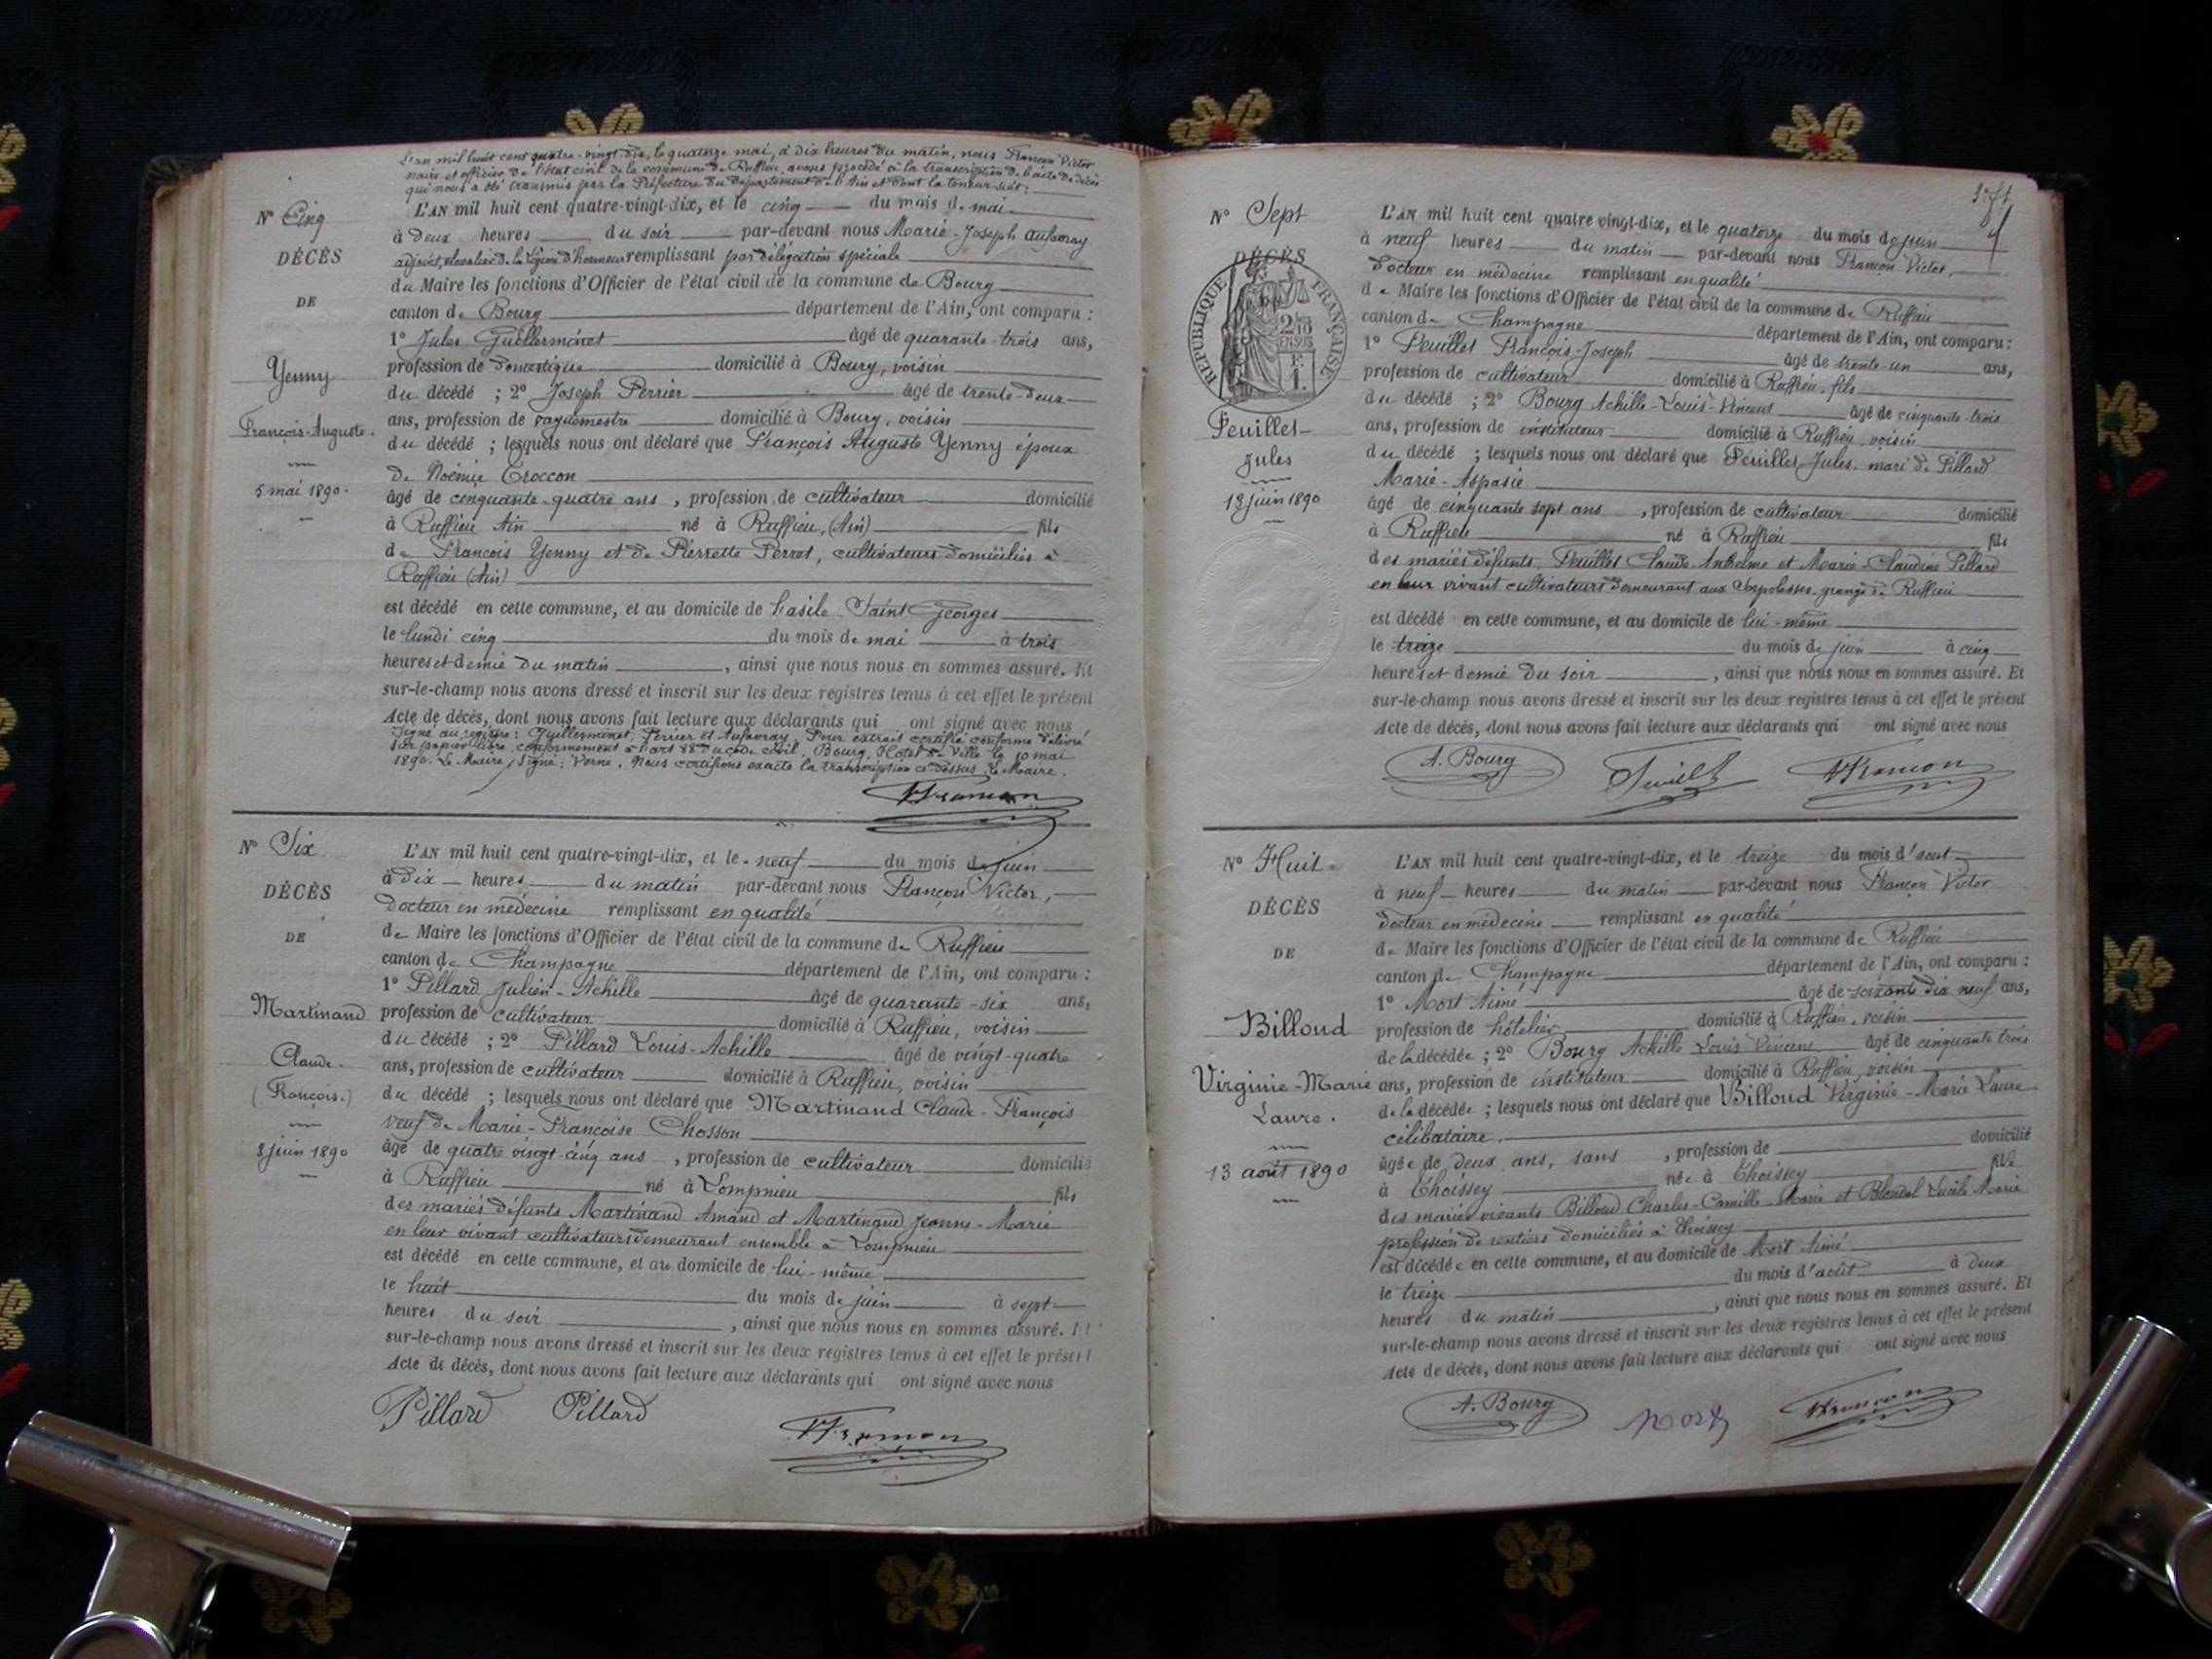 L'an mil huit cent quatre-vingt-dix, le quatorze mai, à dix heures du matin, nous Françon Victor
maire et officier de l'état civil de la commune de Ruffieu, avons procédé à la transcription de l'acte de décès
qui nous a été transmis par la Préfecture du département de l'Ain et dont la teneur suit :
N° Cinq
DÉCÈS
DE
Yenny
François-Auguste.
5 mai 1890.
L'AN mil huit cent quatre-vingt-dix, et le cinq du mois de mai
à deux heures du soir par-devant nous Marie-Joseph Aufavray
adjoint, chevalier de la légion d'honneur remplissant par délégation spéciale
du Maire les fonctions d'Officier de l'état civil de la commune de Bourg
canton de Bourg département de l'Ain, ont comparu :
1° Jules Guillerminet âgé de quarante-trois ans,
profession de domestique domicilié à Bourg, voisin
du décédé ; 2° Joseph Perrier âgé de trente-deux
ans, profession de vaguemestre domicilié à Bourg, voisin
du décédé ; lesquels nous ont déclaré que François Auguste Yenny époux
de Noémie Troccon
âgé de cinquante-quatre ans, profession de cultivateur domicilié
à Ruffieu Ain né à Ruffieu, (Ain) fils
de François Yenny et de Pierrette Perret, cultivateurs domiciliés à
Ruffieu (Ain)
est décédé en cette commune, et au domicile de l'asile Saint Georges
le lundi cinq du mois de mai à trois
heures et demie du matin, ainsi que nous nous en sommes assuré. Et
sur-le-champ nous avons dressé et inscrit sur les deux registres tenus à cet effet le présent
Acte de décès, dont nous avons fait lecture aux déclarants qui ont signé avec nous
Signé au registre : Guillerminet, Perrier et Aufavray. Pour extrait certifié conforme délivré
sur papier libre conformément à l'art 88 du code civil. Bourg, Hôtel de Ville le 10 mai
1890. Le Maire, Signé : Verne. Nous certifions exacte la transcription ci-dessus. Le Maire.
VFrançon
N° Six
DÉCÈS
DE
Martinand
Claude.
(François.)
8 juin 1890
L'AN mil huit cent quatre-vingt-dix, et le neuf du mois de juin
à dix heures du matin par-devant nous Françon Victor,
docteur en médecine remplissant en qualité
de Maire les fonctions d'Officier de l'état civil de la commune de Ruffieu
canton de Champagne département de l'Ain, ont comparu :
1° Pillard Julien-Achille âgé de quarante-six ans,
profession de cultivateur domicilié à Ruffieu, voisin
du décédé ; 2° Pillard Louis-Achille âgé de vingt-quatre
ans, profession de cultivateur domicilié à Ruffieu, voisin
du décédé ; lesquels nous ont déclaré que Martinand Claude-François
veuf de Marie-Françoise Chosson
âgé de quatre vingt-cinq ans, profession de cultivateur domicilié
à Ruffieu né à Lompnieu fils
des mariés défunts Martinand Amand et Martinand Jeanne-Marie
en leur vivant cultivateurs demeurant ensemble à Lompnieu
est décédé en cette commune, et au domicile de lui-même
le huit du mois de juin à sept
heures du soir, ainsi que nous nous en sommes assuré. Et
sur-le-champ nous avons dressé et inscrit sur les deux registres tenus à cet effet le présent
Acte de décès, dont nous avons fait lecture aux déclarants qui ont signé avec nous
Pillard Pillard
VFrançon
N° Sept
DÉCÈS
RÉPUBLIQUE FRANÇAISE
Feuillet
Jules
13 juin 1890
L'AN mil huit cent quatre vingt-dix, et le quatorze du mois de juin
à neuf heures du matin par-devant nous Françon Victor,
docteur en médecine remplissant en qualité
de Maire les fonctions d'Officier de l'état civil de la commune de Ruffieu
canton de Champagne département de l'Ain, ont comparu :
1° Feuillet François-Joseph âgé de trente-un ans,
profession de cultivateur domicilié à Ruffieu, fils
du décédé ; 2° Bourg Achille-Louis-Vincent âgé de cinquante-trois
ans, profession de instituteur domicilié à Ruffieu, voisin
du décédé ; lesquels nous ont déclaré que Feuillet Jules, mari de Pillard
Marie-Aspasie
âgé de cinquante sept ans, profession de cultivateur domicilié
à Ruffieu né à Ruffieu fils
des mariés défunts, Feuillet Claude-Anthelme et Marie-Claudine Pillard
en leur vivant cultivateurs demeurant aux grange de Ruffieu
est décédé en cette commune, et au domicile de lui-même
le treize du mois de juin à cinq
heures et demie du soir, ainsi que nous nous en sommes assuré. Et
sur-le-champ nous avons dressé et inscrit sur les deux registres tenus à cet effet le présent
Acte de décès, dont nous avons fait lecture aux déclarants qui ont signé avec nous
A. Bourg Feuillet VFrançon
N° Huit
DÉCÈS
DE
Billoud
Virginie-Marie
Laure.
13 août 1890
L'AN mil huit cent quatre-vingt-dix, et le treize du mois d'août
à neuf heures du matin par-devant nous Françon Victor
docteur en médecine remplissant en qualité
de Maire les fonctions d'Officier de l'état civil de la commune de Ruffieu
canton de Champagne département de l'Ain, ont comparu :
1° Mort Aimé âgé de soixante dix neuf ans,
profession de hôtelier domicilié à Ruffieu, voisin
de la décédée ; 2° Bourg Achille Louis Vincent âgé de cinquante trois
ans, profession de instituteur domicilié à Ruffieu, voisin
de la décédée ; lesquels nous ont déclaré que Billoud Virginie-Marie Laure
célibataire.
âgée de deux ans, sans, profession de domicilié
à Thoissey née à Thoissey fille
des mariés vivants Billoud Charles-Camille-Marie et Blondel Lucile Marie
profession de rentiers domiciliés à Thoissey
est décédée en cette commune, et au domicile de Mort Aimé
le treize du mois d'août à deux
heures du matin, ainsi que nous nous en sommes assuré. Et
sur-le-champ nous avons dressé et inscrit sur les deux registres tenus à cet effet le présent
Acte de décès, dont nous avons fait lecture aux déclarants qui ont signé avec nous
A. Bourg Mort VFrançon